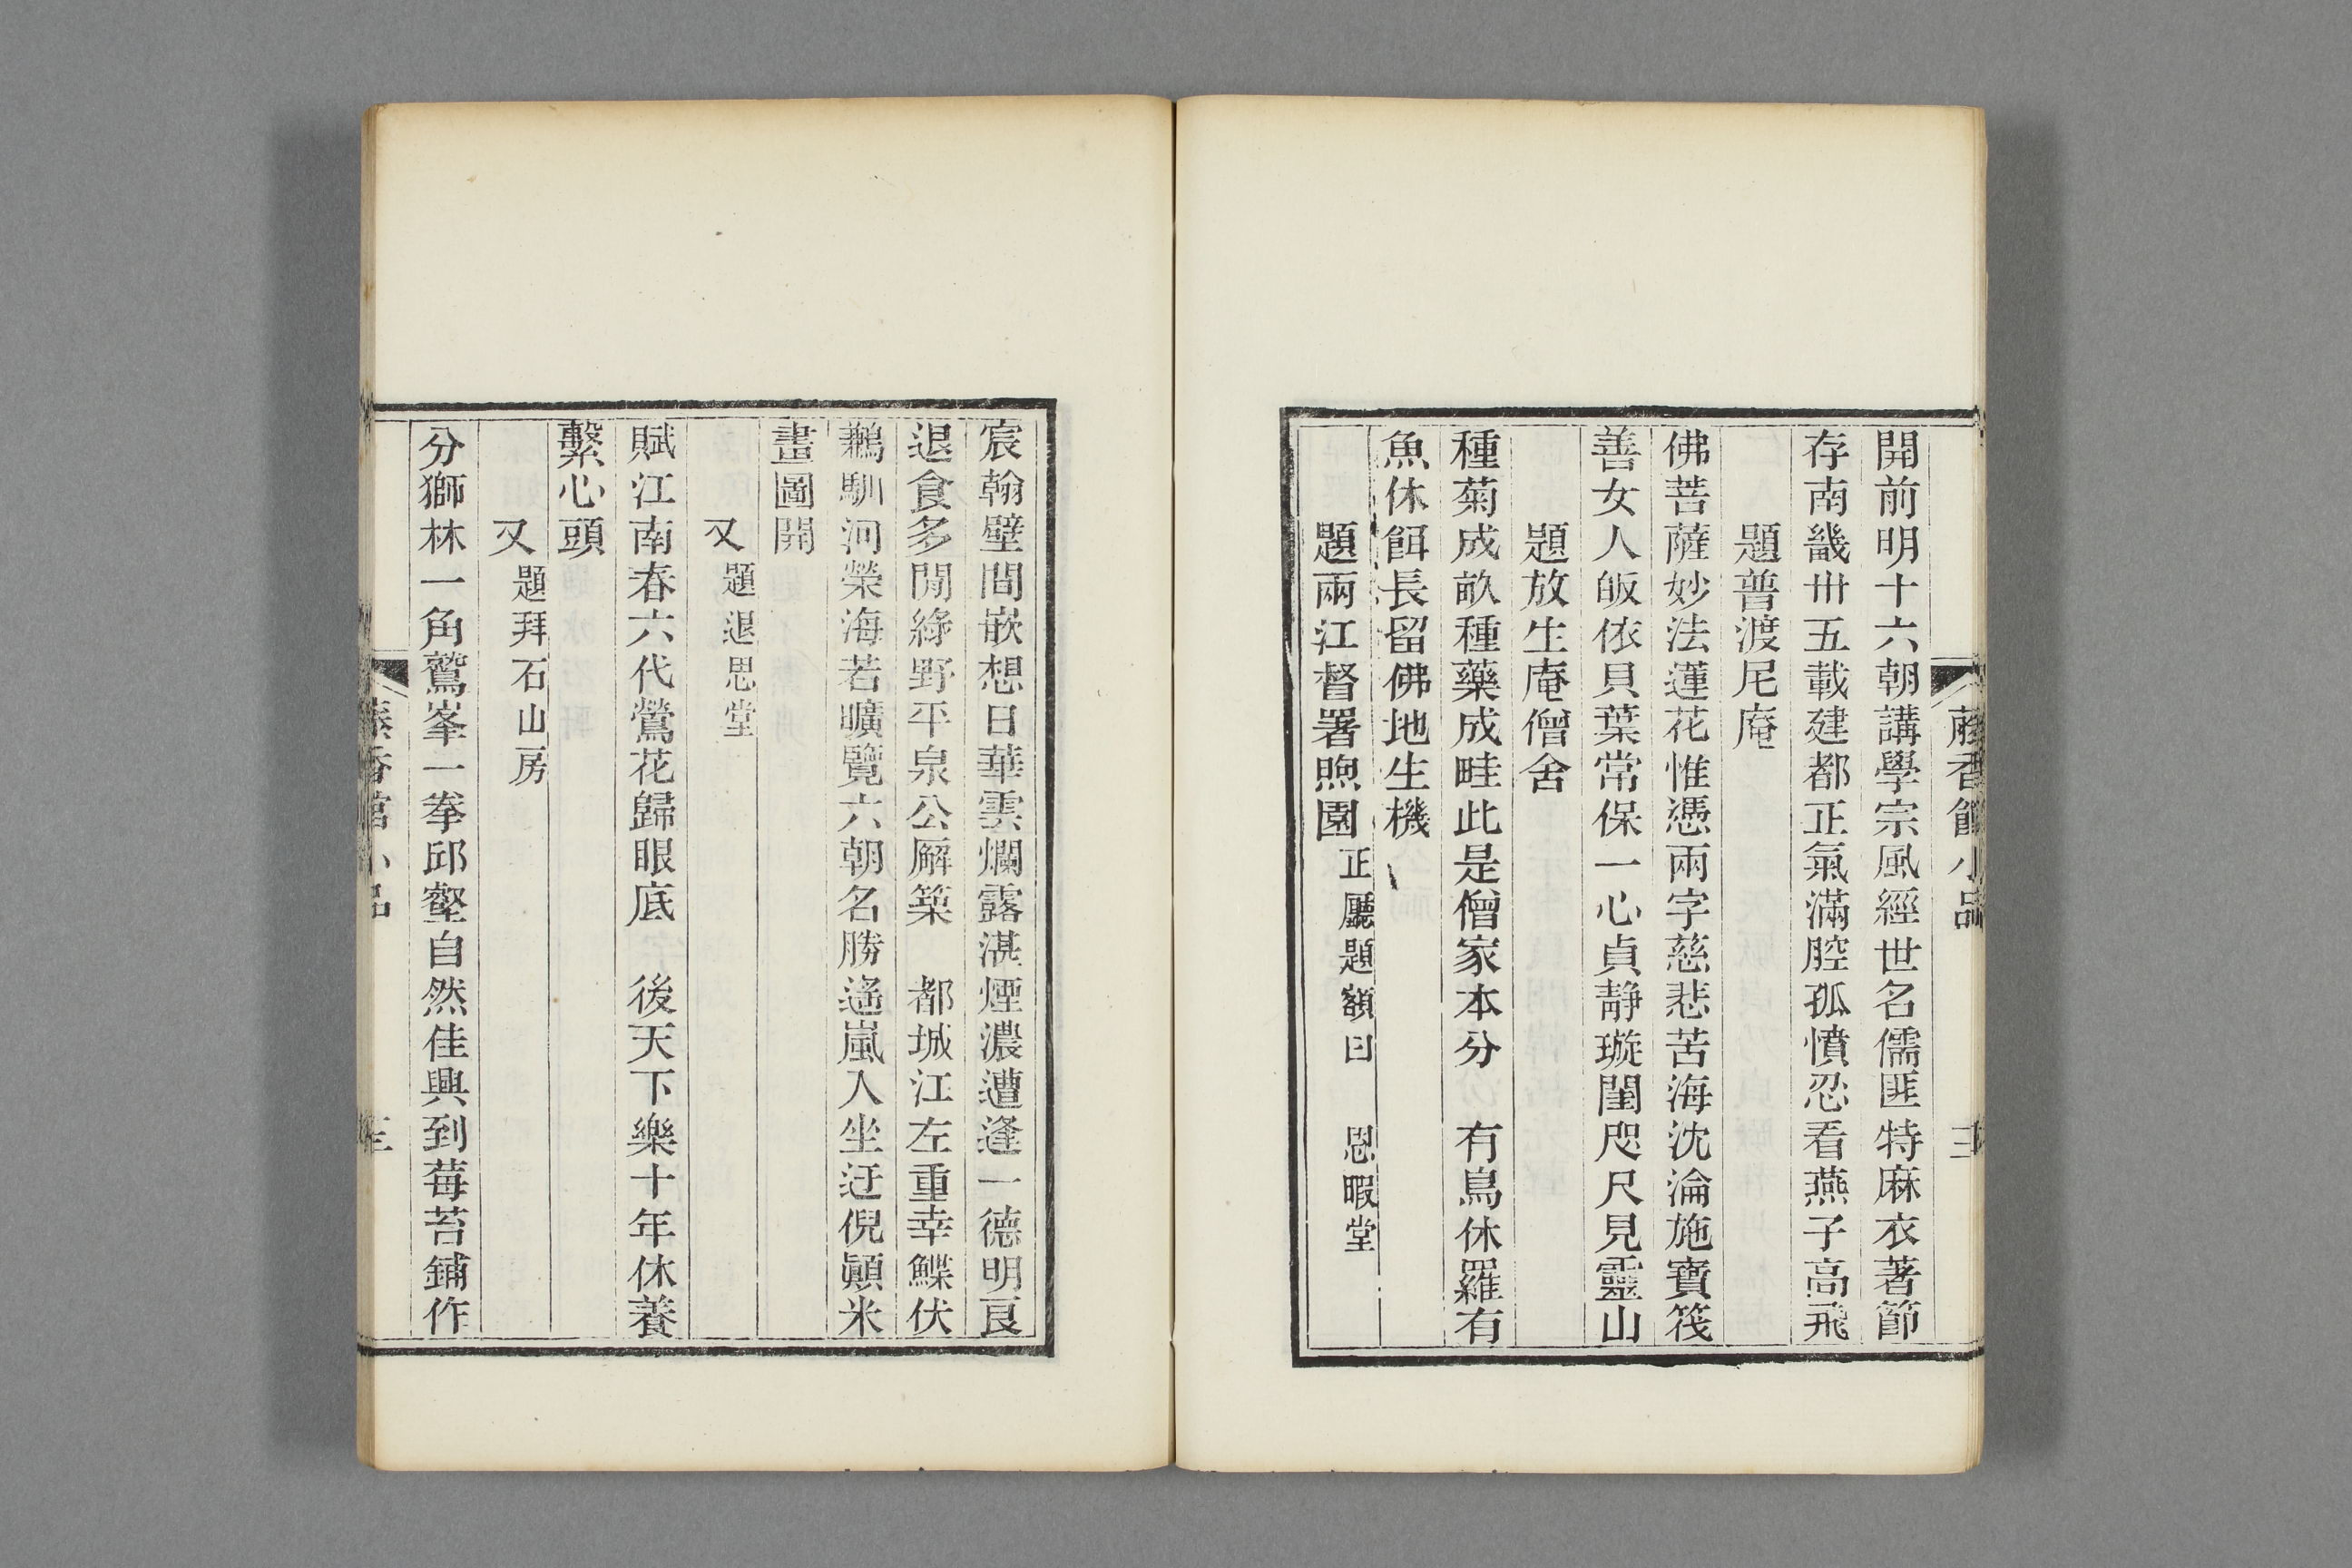 藤香館小品
開前明十六朝講學宗風經世名儒匪特麻衣著節
存南畿卅五載建都正氣滿腔孤憤忍看燕子高飛
題普渡尼庵
佛菩薩妙法蓮花惟憑兩字慈悲苦海沈淪施寶筏
善女人皈依貝葉常保一心貞靜璇閨咫尺見靈山
題放生庵僧舍
種菊成畝種藥成畦此是僧家本分　有鳥休羅有
魚休餌長留佛地生機
題兩江督署煦園正廳題額曰　恩暇堂
宸翰壁間嵌想日華雲爛露湛煙濃遭逢一德明良
退食多閒綠野平泉公廨築　都城江左重幸鰈伏
鶼馴河榮海若曠覽六朝名勝遙嵐入坐迂倪顚米
畫圖開
又題退思堂
賦江南春六代鶯花歸眼底　後天下樂十年休養
繫心頭
又題拜石山房
分獅林一角鷲峯一拳邱壑自然佳興到莓苔鋪作
香館小品